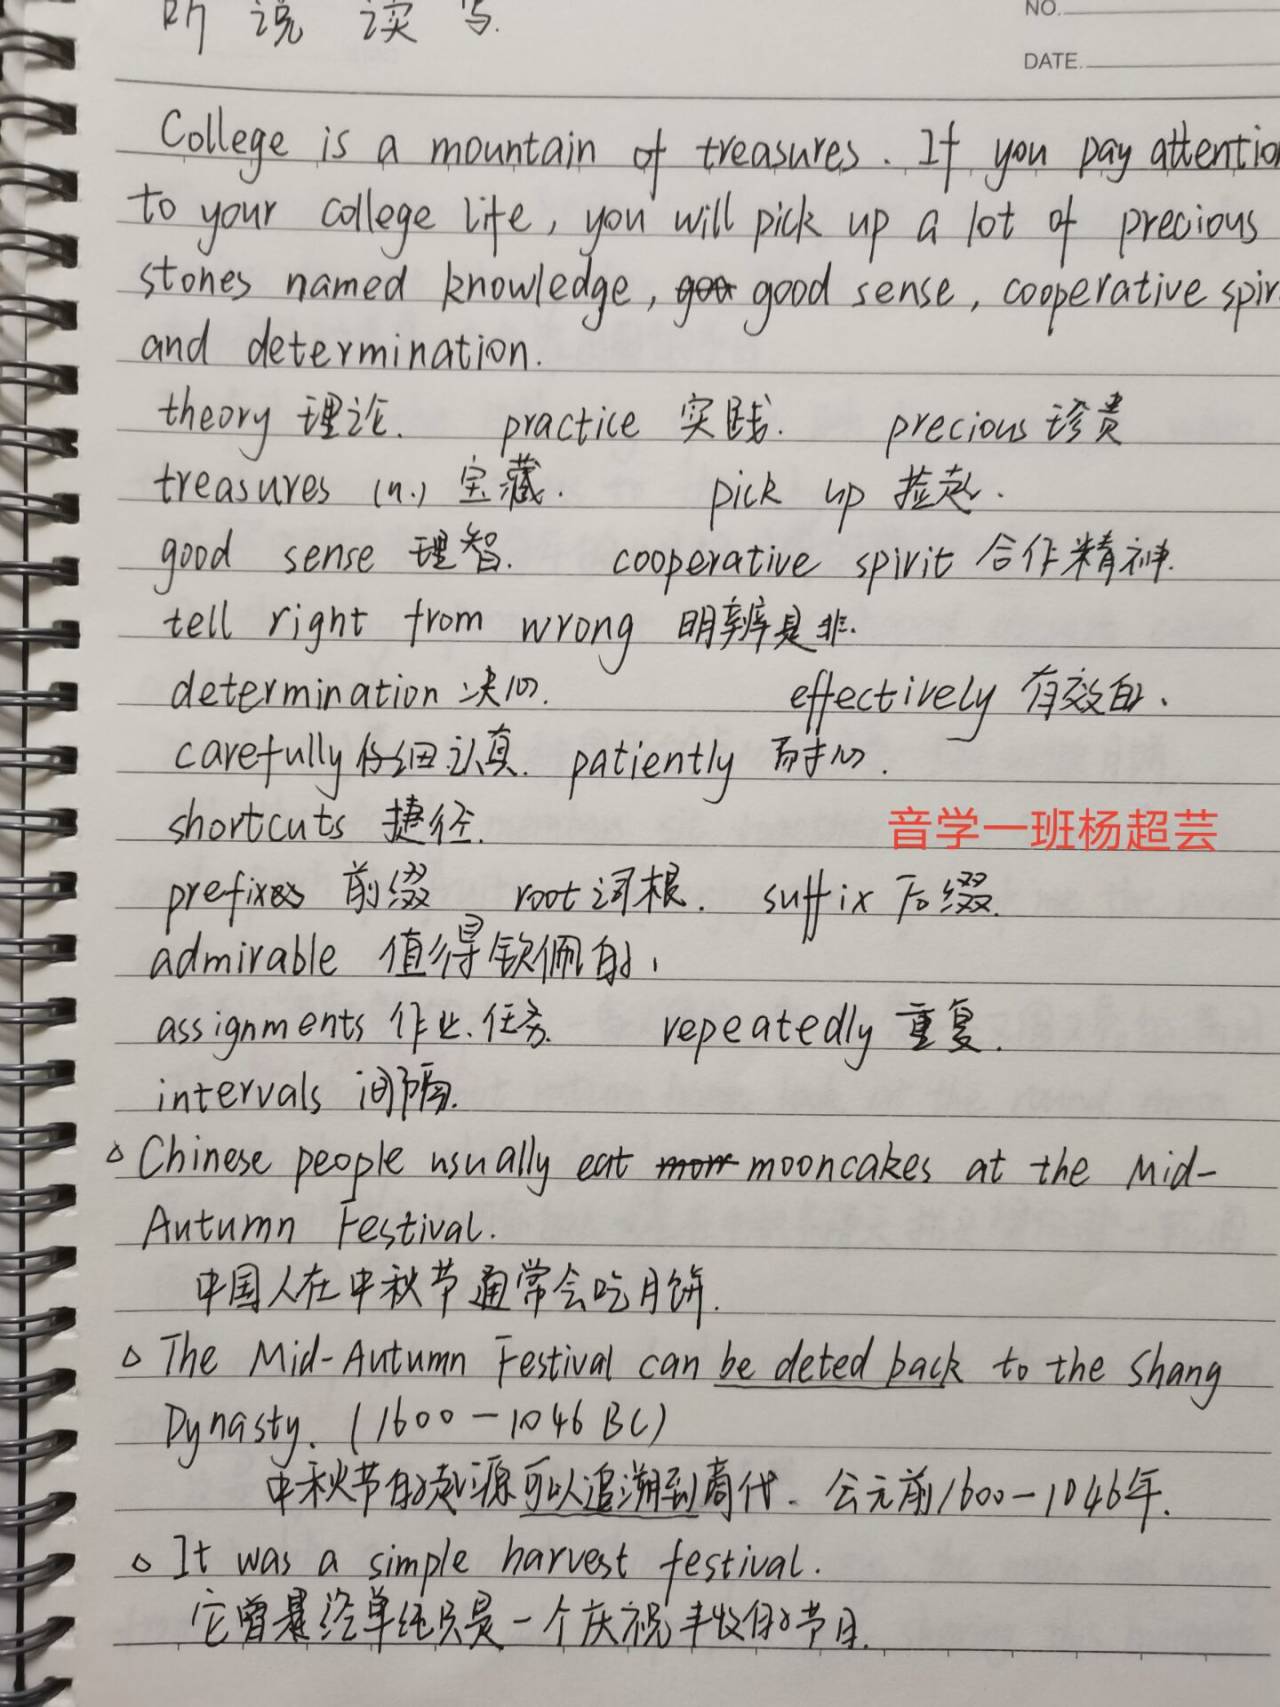 听 说 读 写.
NO.
DATE.
College is a mountain of treasures. If you pay attentio
to your college life, you will pick up a lot of precious
stones named knowledge, good sense, cooperative spir
and determination.
theory 理论. practice 实践. precious 珍贵
treasures (n.) 宝藏. pick up 捡起.
good sense 理智. cooperative spirit 合作精神.
tell right from wrong 明辨是非.
determination 决心. effectively 有效的、
carefully 仔细认真. patiently 耐心.
shortcuts 捷径.
音学一班杨超芸
prefixes 前缀 root 词根. suffix 后缀.
admirable 值得钦佩的,
assignments 作业.任务. repeatedly 重复.
intervals 间隔.
△ Chinese people usually eat mooncakes at the Mid-
Autumn Festival.
中国人在中秋节通常会吃月饼.
△ The Mid-Autumn Festival can be deted back to the Shang
Dynasty. (1600-1046 BC)
中秋节的起源可以追溯到商代. 公元前1600-1046年.
△ It was a simple harvest festival.
它曾是单纯只是一个庆祝丰收的节日.